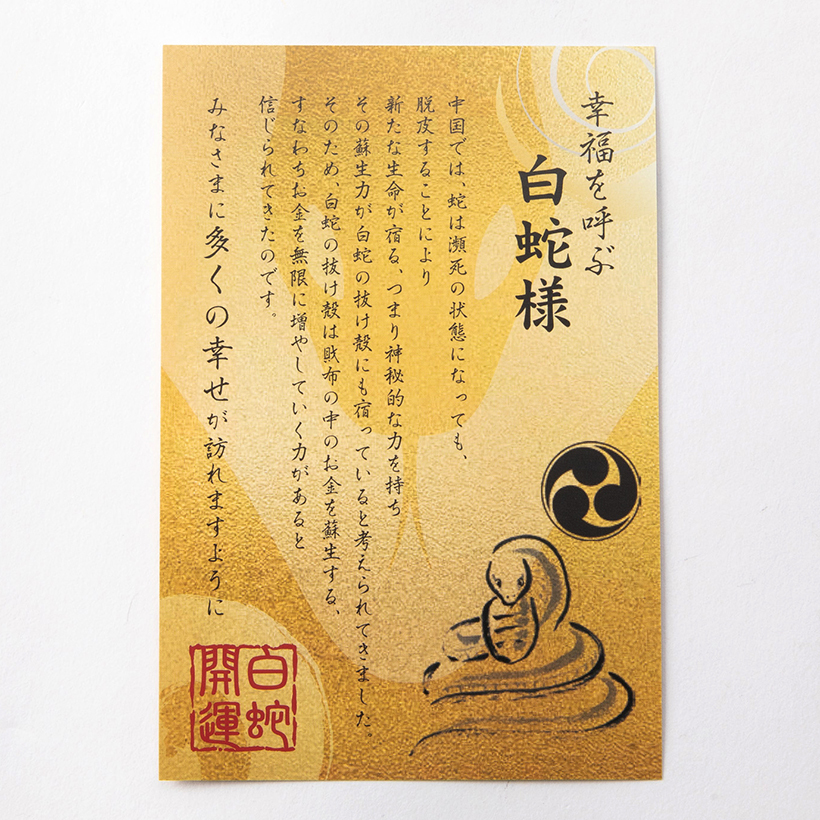 幸福を呼ぶ
白蛇様
中国では、蛇は瀕死の状態になっても、
脱皮することにより
新たな生命が宿る、つまり神秘的な力を持ち
その蘇生力が白蛇の抜け殻にも宿っていると考えられてきました。
そのため、白蛇の抜け殻は財布の中のお金を蘇生する、
すなわちお金を無限に増やしていく力があると
信じられてきたのです。
みなさまに多くの幸せが訪れますように
白蛇
開運